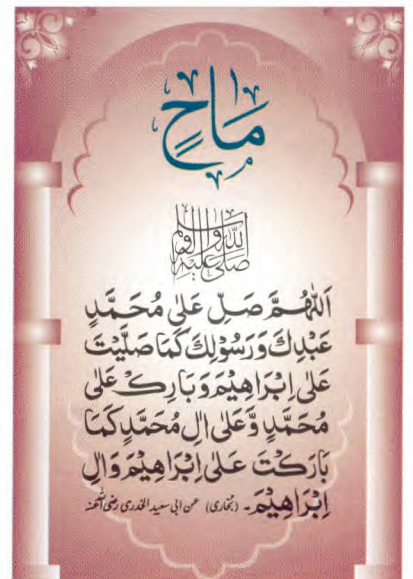 مَاحٍ
صلی اللہ علیہ وآلہ وسلم
اَللّٰهُمَّ صَلِّ عَلٰی مُحَمَّدٍ
عَبْدِكَ وَرَسُوْلِكَ كَمَا صَلَّيْتَ
عَلٰی اِبْرَاهِيْمَ وَ بَارِكْ عَلٰی
مُحَمَّدٍ وَّعَلٰی اٰلِ مُحَمَّدٍ كَمَا
بَارَكْتَ عَلٰی اِبْرَاهِيْمَ وَاٰلِ
اِبْرَاهِيْمَ۔ (بخاری) عن ابی سعید الخدری رضی اللہ عنہ